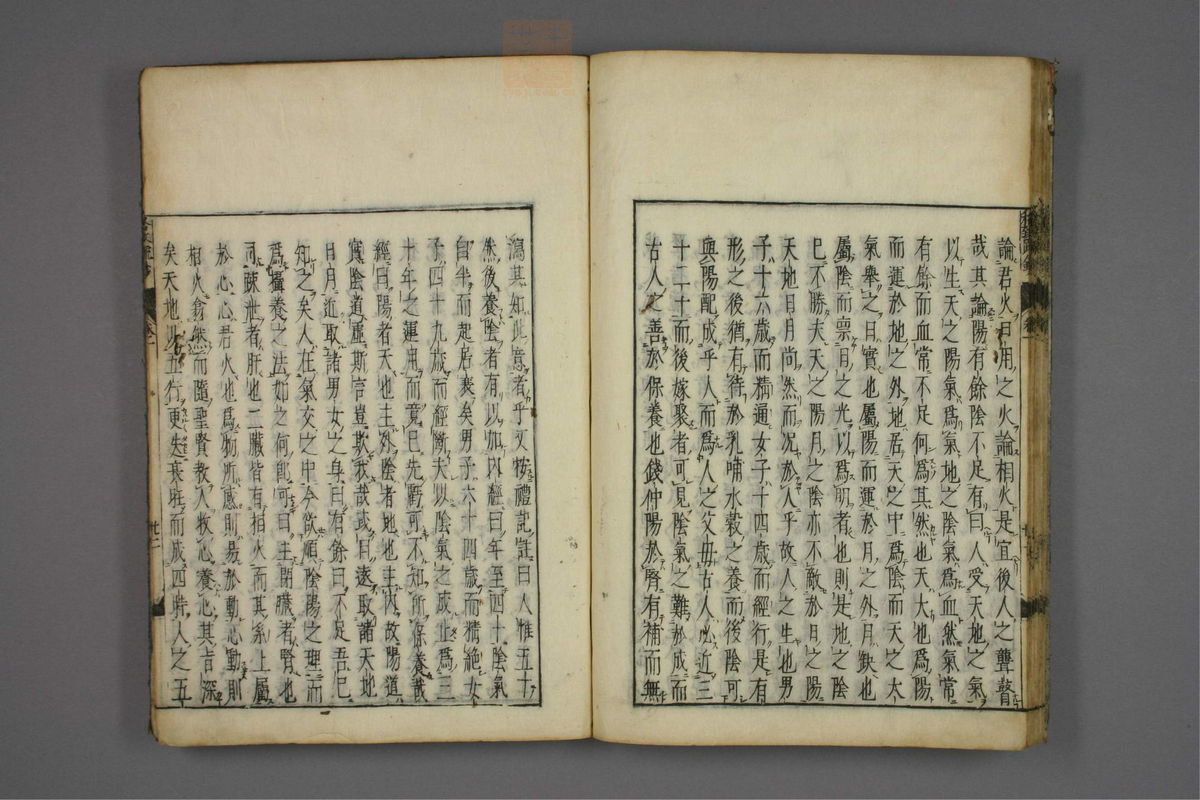 論君火曰用之火論相火是宜後人之聾瞽
哉其論陽有餘陰不足有曰人受天地之氣
以生天之陽氣爲氣地之陰氣爲血然氣常
有餘而血常不足何爲其然也天大也爲陽
而運於地之外地居天之中爲陰而天之大
氣舉之日實也屬陽而運於月之外月缺也
屬陰而禀日之光以爲明者也則是地之陰
已不勝夫天之陽月之陰亦不敵於日之陽
天地日月尚然而况於人乎故人之生也男
子十六歲而精通女子十四歲而經行是有
形之後猶有待於乳哺水穀之養而後陰可
與陽配成乎人而爲人之父毋古人必近三
十二十而後嫁娶者可見陰氣之難於成而
古人之善於保養也錢仲陽於腎有補而無
瀉其知此意者乎又按禮記註曰人惟五十
然後養陰者有以加内經曰年至四十陰氣
自半而起居衰矣男子六十四歲而精絶女
子四十九歲而經斷夫以陰氣之成止爲三
十年之運用而竟已先虧可不知所保養哉
經曰陽者天也主外陰者地也主内故陽道
實陰道虛斯言豈欺我哉或曰遠取諸天地
日月近取諸男女之身曰有餘曰不足吾已
知之矣人在氣交之中今欲順陰陽之理而
爲攝養之法如之何則可曰主閉臓者腎也
司疎泄者肝也二臓皆有相火而其系上屬
於心心君火也爲物所感則易於動心動則
相火翕然而隨聖賢教人收心養心其旨深
矣天地以五行更迭衰旺而成四時人之五